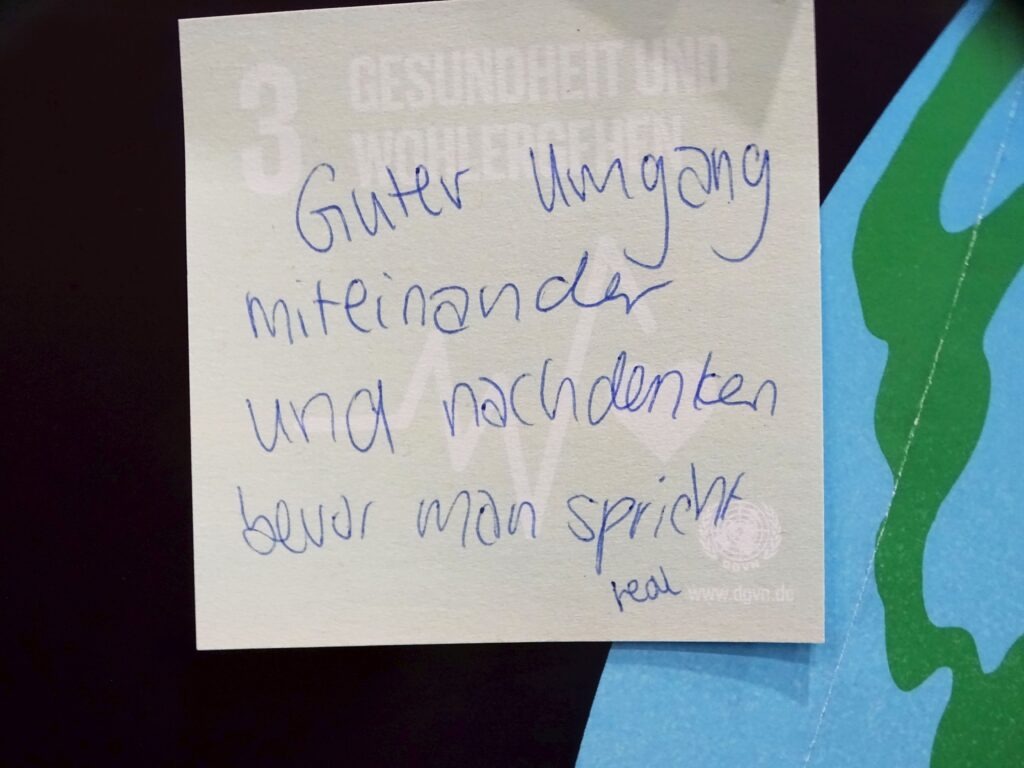 3 GESUNDHEIT UND
WOHLERGEHEN
Guter Umgang
miteinander
und nachdenken
bevor man spricht
real
DGVN
www.dgvn.de